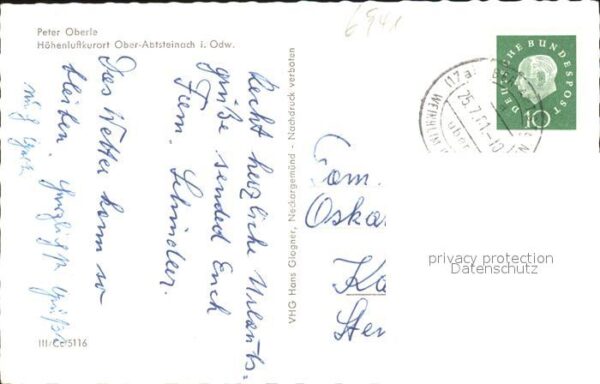 6941
Peter Oberle
Höhenluftkurort Ober-Abtsteinach i. Odw.
Recht herzliche Urlaubs-
grüße sendet Euch
Fam. Schindler.
Das Wetter kann so
bleiben. Herzliche Grüße
VHG Hans Glogner, Neckargemünd - Nachdruck verboten
III/Cc/5116
DEUTSCHE BUNDESPOST
10
(17a)
25.7.61.-10
über
WEINHEIM
Fam.
Oskar
Ka
Ster
privacy protection
Datenschutz